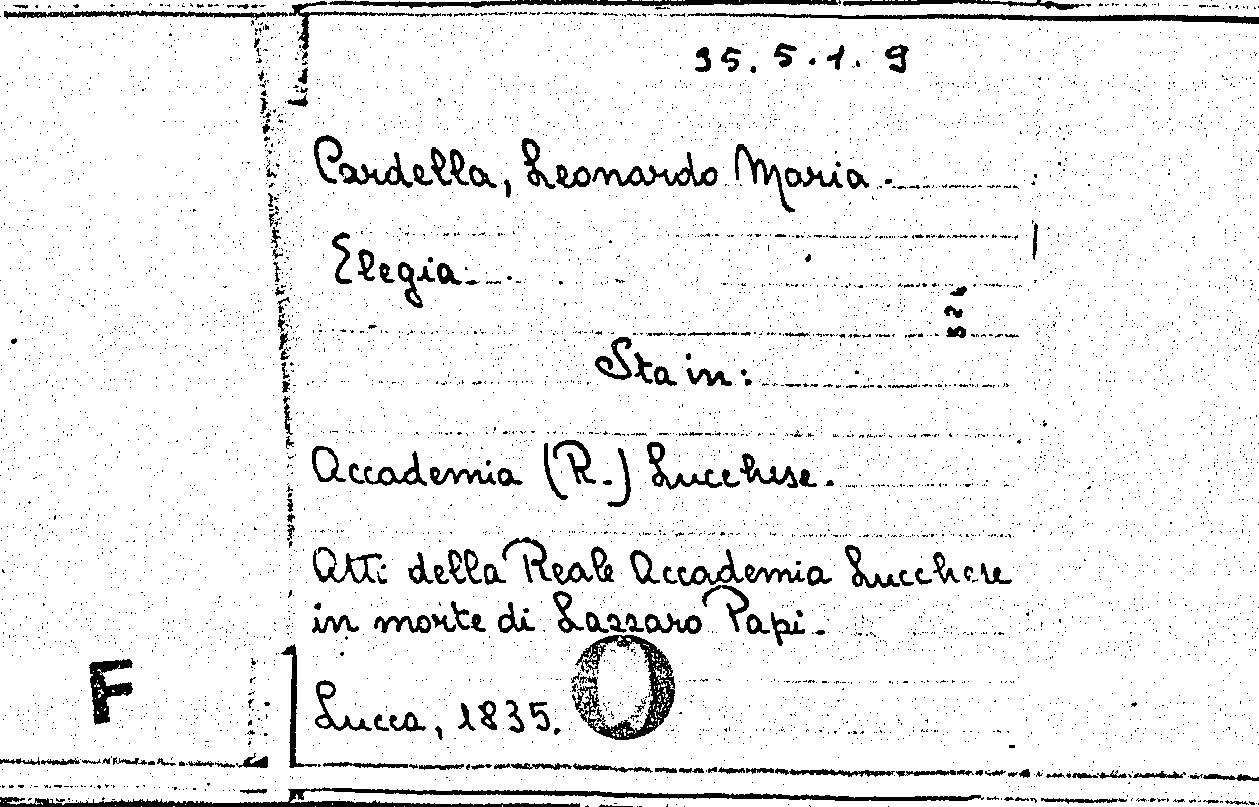 35.5.1.9
Cardella, Leonardo Maria.
Elegia.
524
Sta in:
Accademia (R.) Lucchese.
Atti della Reale Accademia Lucchese
in morte di Lazzaro Papi.
F
Lucca, 1835.